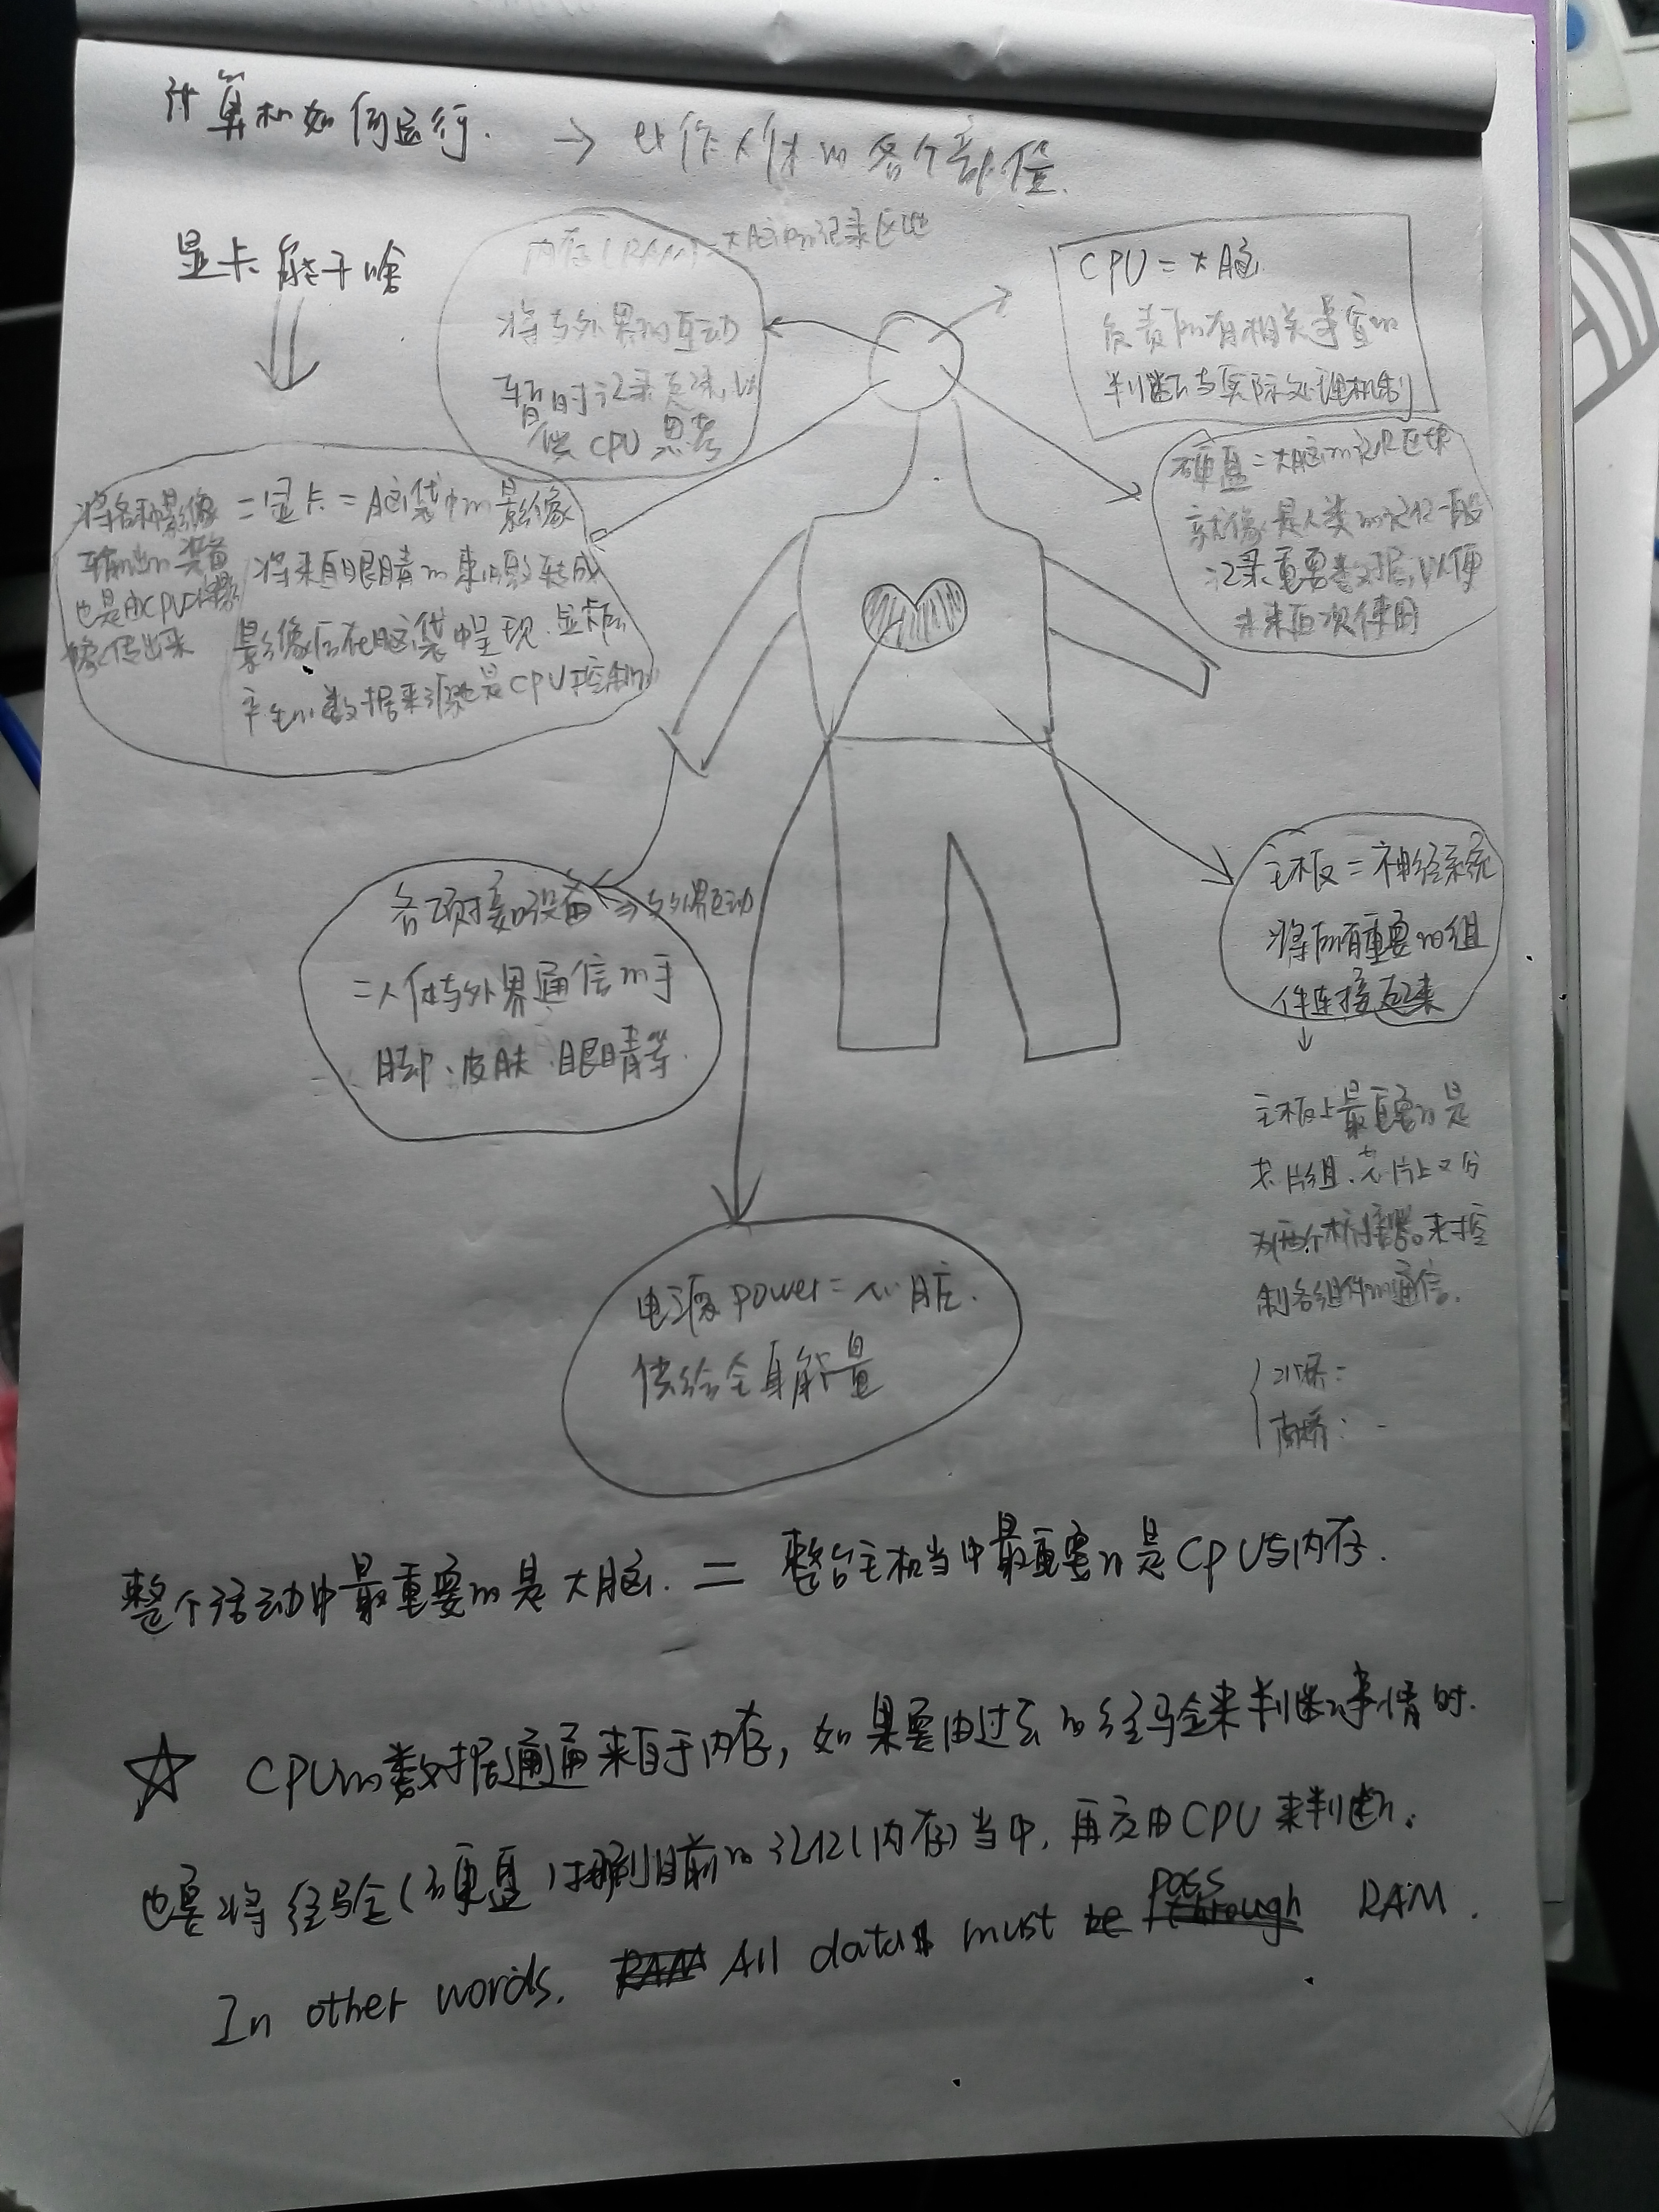 计算机如何运行. → 比作人体的各个部位.
显卡能干啥
内存(RAM)=大脑的记录区块
将与外界的互动
暂时记录起来,以
供CPU思考
CPU = 大脑
负责所有相关事宜的
判断与实际处理机制
硬盘=大脑的记忆区块
就像是人类的记忆一般
记录重要数据,以便
未来再次使用
将各种影像
输出的装备
也是由CPU将影
像传出来
=显卡=脑袋中的影像
将来自眼睛的刺激转成
影像后在脑袋中呈现.显卡所
产生的数据来源也是CPU控制的
各项接口设备 ⇒与外界互动
=人体与外界通信的手
脚、皮肤、眼睛等.
主板=神经系统
将所有重要的组
件连接起来
↓
主板上最重要的是
芯片组.芯片上又分
为两个桥接器来控
制各组件的通信.
北桥:
南桥:
电源power=心脏.
供给全身能量
整个活动中最重要的是大脑. = 整台主机当中最重要的是CPU与内存.
☆ CPU的数据通通来自于内存,如果要由过去的经验来判断事情时.
也要将经验(硬盘)挪到目前的记忆(内存)当中,再交由CPU来判断.
In other words. All data must pass through RAM.